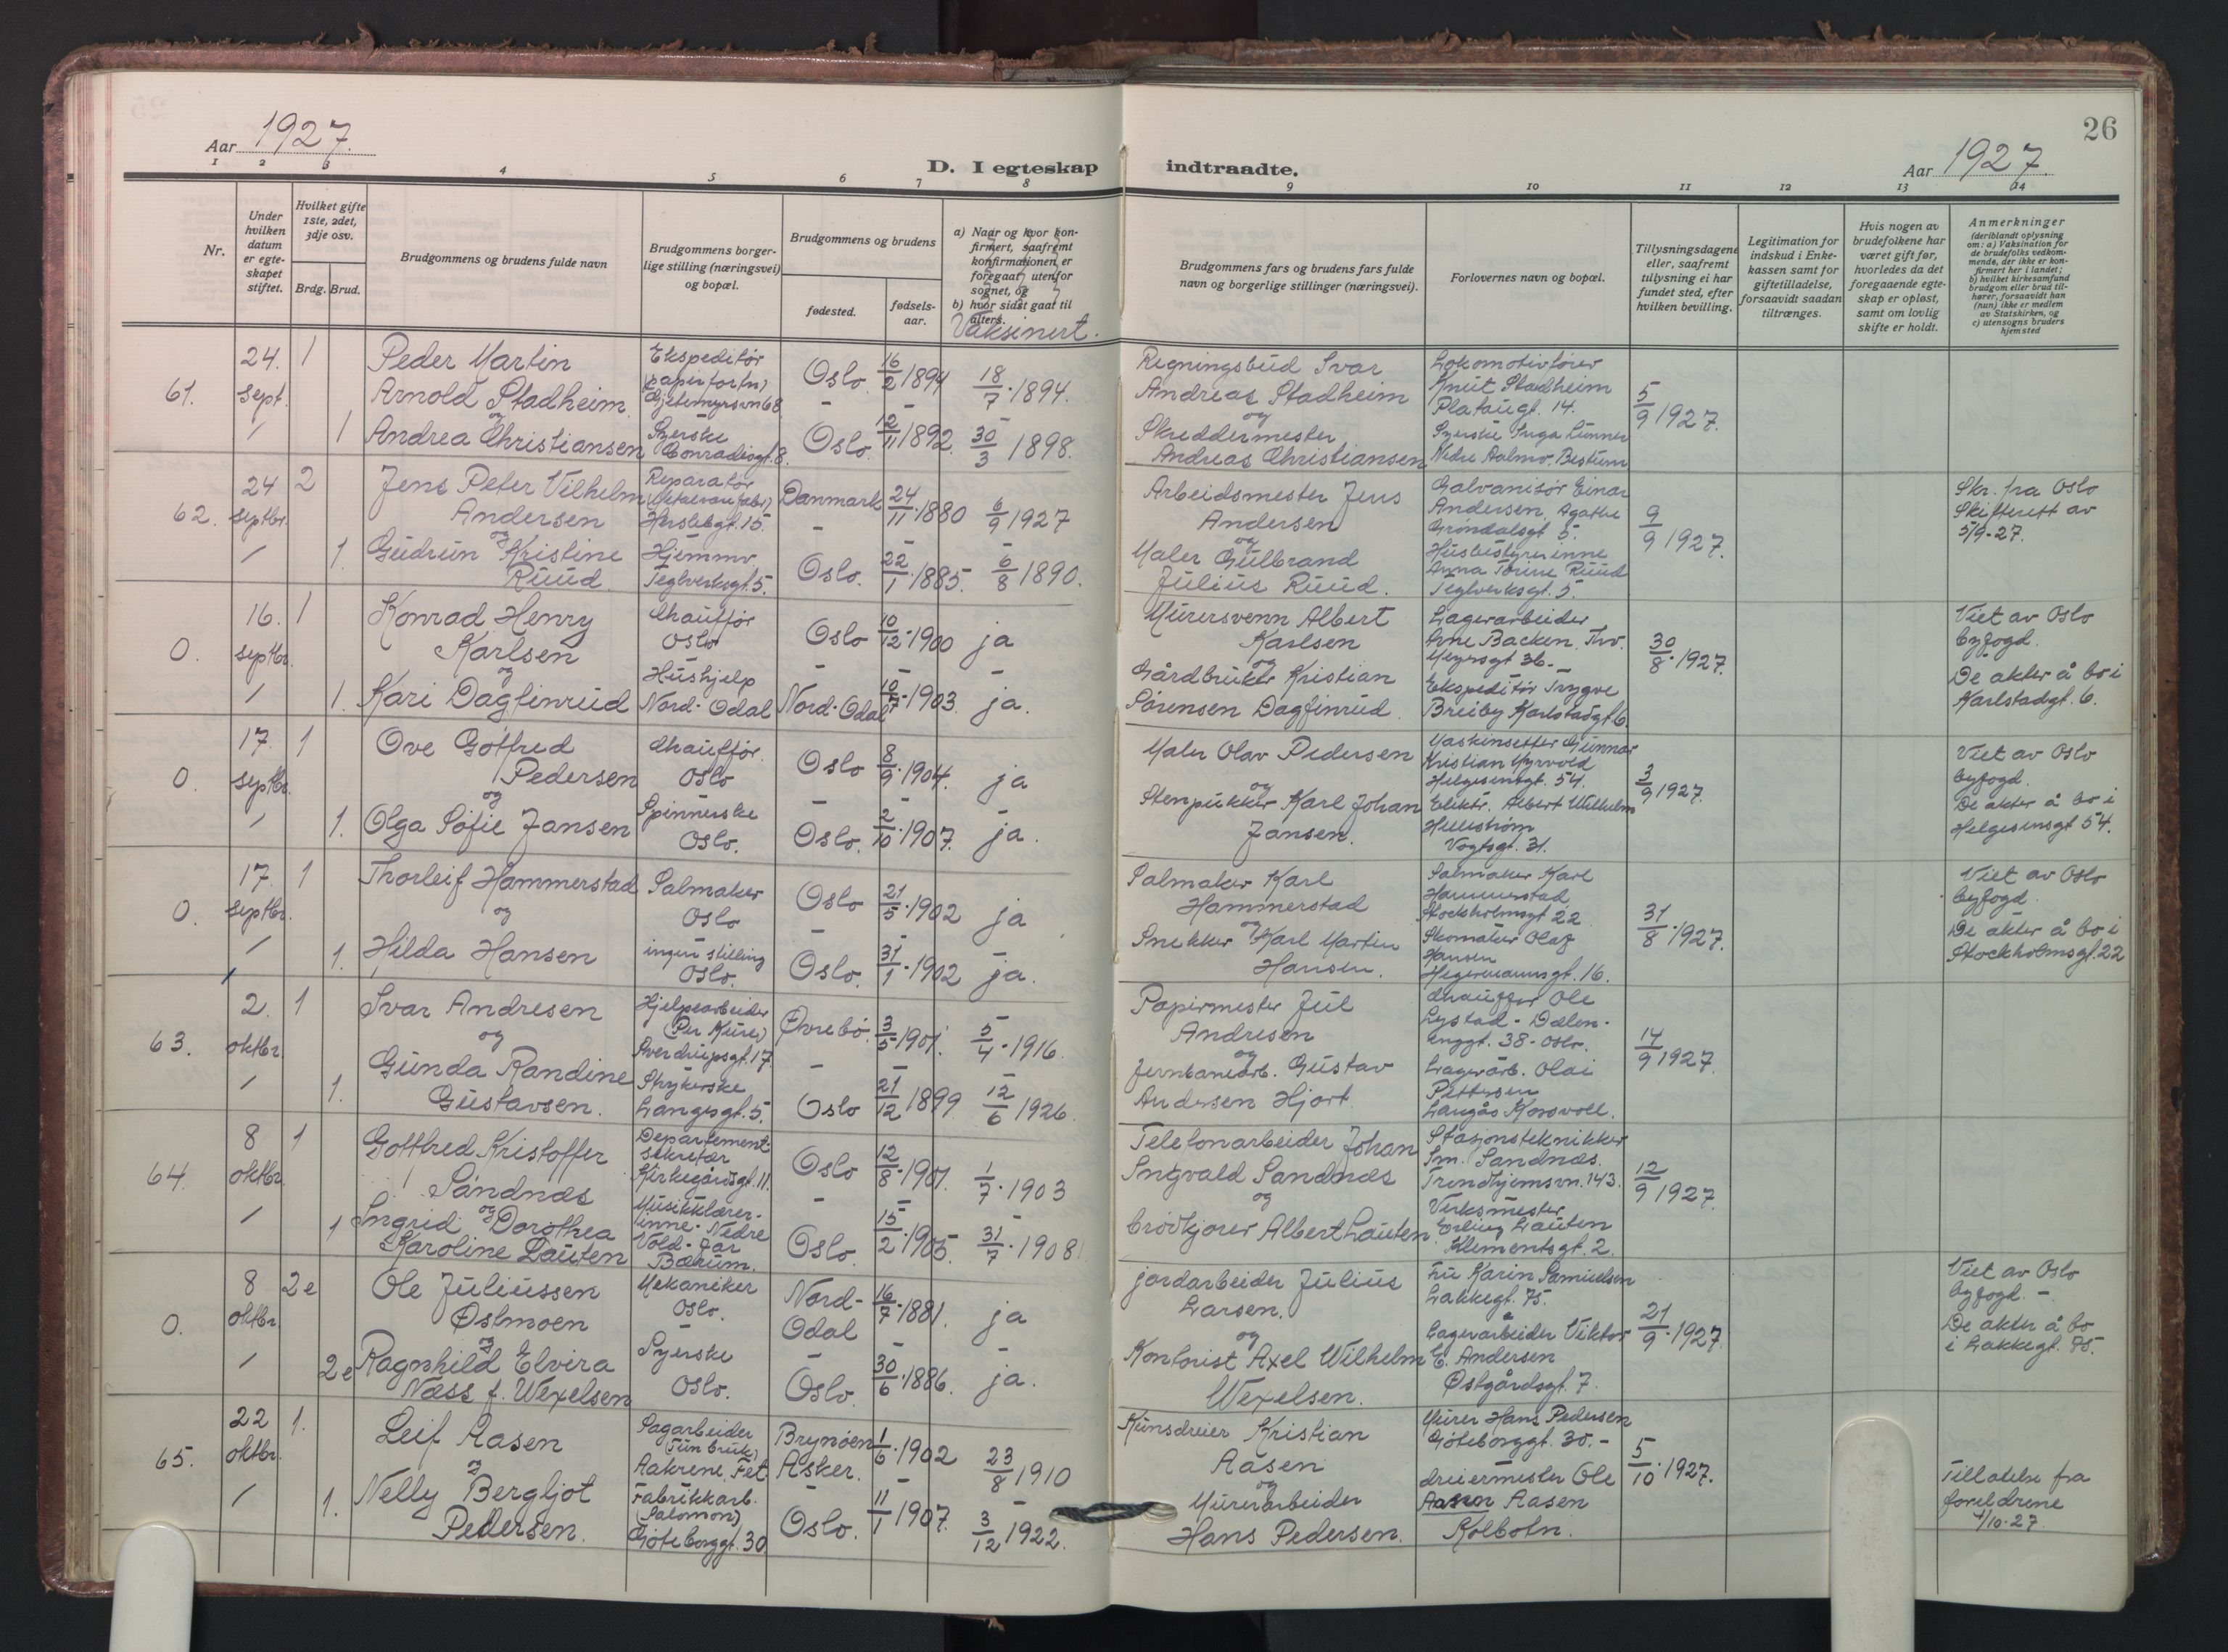 26
Aar 1927.
D. I egteskap indtraadte.
Aar 1927.
1 2 3 4 5 6 7 8 9 10 11 12 13 14
Nr.
Under hvilken datum er egteskapet stiftet.
Hvilket gifte 1ste, 2det, 3dje osv.
Brdg. Brud.
Brudgommens og brudens fulde navn
Brudgommens borgerlige stilling (næringsvei) og bopæl.
Brudgommens og brudens
fødested.
fødselsaar.
a) Naar og hvor konfirmert, saafremt konfirmationen er foregaat utenfor sognet, og
b) hvor sidst gaat til alters.
Vaksinert.
Brudgommens fars og brudens fars fulde navn og borgerlige stillinger (næringsvei).
Forlovernes navn og bopæl.
Tillysningsdagene eller, saafremt tillysning ei har fundet sted, efter hvilken bevilling.
Legitimation for indskud i Enkekassen samt for giftetilladelse, forsaavidt saadan tiltrænges.
Hvis nogen av brudefolkene har været gift før, hvorledes da det foregaaende egteskap er opløst, samt om lovlig skifte er holdt.
Anmerkninger
(deriblandt oplysning om: a) Vaksination for de brudefolks vedkommende, der ikke er konfirmert her i landet; b) hvilket kirkesamfund brudgom eller brud tilhører, forsaavidt han (hun) ikke er medlem av Statskirken, og c) utensogns bruders hjemsted
61. 24. Sept. 1
Peder Martin
Arnold Stadheim
og
1 Andrea Christiansen
Ekspeditør
(papirforn)
Gjetemyrsvn 68
Syerske
Conradisgt. 8.
Oslo 16/2 1894 18/7 · 1894.
Oslo. 12/11 1892. 30/3 1898.
Regningsbud Ivar
Andreas Stadheim
og
Skreddermester
Andreas Christiansen
Lokomotivfører
Knut Stadheim
Plataugt. 14.
Syerske Inga Lunner
Nedre Aalmo. Bestum
5/9 1927.
62. 24 septbr. 2
Jens Peter Vilhelm
Andersen
og
1. Gudrun Kristine
Ruud.
Reparatør
Herslebgt. 15.
Hjemmv.
Teglverksgt. 5.
Danmark 24/11 · 1880 6/9 1927
Oslo. 22/1 · 1885. 6/8 1890.
Arbeidsmester Jens
Andersen
og
Maler Gulbrand
Julius Ruud.
Galvanisør Einar
Andersen, Agathe
Grøndalsgt 5.
Husbestyrerinne
Anna Torine Ruud
Teglverksgt. 5.
9/9 1927.
Skr. fra Oslo
Skifterett av
5/9-27.
0. 16. septbr. 1
Konrad Henry
Karlsen
og
1. Kari Dagfinrud
Chauffør
Oslo
Hushjelp
Nord-Odal
Oslo 10/12 · 1900 ja
Nord-Odal 10/7 · 1903 ja.
Murersvenn Albert
Karlsen
og
Gårdbruker Kristian
Sørensen Dagfinrud.
Lagerarbeider
Arne Backen, Thv.
Meyersgt 36.-
Ekspeditør Trygve
Breiby Karlstadgt 6.
30/8 · 1927.
Viet av Oslo
byfogd.
De akter å bo i
Karlstadgt. 6.
0. 17. septbr. 1
Ove Gotfred
Pedersen
og
1. Olga Sofie Jansen
Chauffør.
Oslo
Spinnerske
Oslo.
Oslo 8/9 · 1904. ja
Oslo. 2/10 · 1907. ja.
Maler Olav Pedersen
og
Stenpukker Karl Johan
Jansen.
Maskinsetter Gunnar
Kristian Myrvold
Helgesensgt. 54.
Elektr. Albert Wilhelm
Hellstrøm
Vogtsgt. 31.
3/9 1927.
Viet av Oslo
byfogd.
De akter å bo i
Helgesensgt 54.
0. 17. septbr. 1
Thorleif Hammerstad
og
1. Hilda Hansen
Salmaker
Oslo
ingen stilling
Oslo.
Oslo 21/5 · 1902 ja
Oslo. 31/1 · 1902 ja.
Salmaker Karl
Hammerstad
og
Snekker Karl Martin
Hansen.
Salmaker Karl
Hammerstad
Stockholmsgt 22
Skomaker Olaf
Hansen
Hegermannsgt. 16.
31/8 · 1927.
Viet av Oslo
byfogd.
De akter å bo i
Stockholmsgt. 22
63. 2. oktbr. 1
Ivar Andresen
og
1. Gunda Randine
Gustavsen.
Hjelpearbeider
(Per Kure)
Sverdrupsgt. 17.
Strykerske
Langesgt. 5.
Øvrebø. 3/5 · 1901. 5/4 · 1916.
Oslo 21/12 1899 12/6 1926.
Papirmester Jul
Andresen
og
Jernbanearb. Gustav
Andersen Hjort.
Chauffør Ole
Lystad - Dælen-
enggt. 38 - Oslo.
Lagerarb. Olai
Pettersen
Langås Korsvoll.
14/9 1927.
64. 8 oktbr. 1
Gottfred Kristoffer
Sandnæs
og
1 Ingrid Dorothea
Karoline Lauten
Departement-
sekretær
Kirkegårdsgt. 11.
Musikklærer-
inne - Nedre
Vold - Jar
Bærum.
Oslo 12/8 · 1901. 1/7 · 1903
Oslo. 15/2 · 1905. 31/7 · 1908
Telefonarbeider Johan
Ingvald Sandnæs
og
Brødkjører Albert Lauten
Stasjonstekniker
Im. Sandnæs.
Trondhjemsvn. 143.
Verksmester
Erling Lauten
Klementsgt. 2.
12/9 1927.
0. 8 oktbr. 2e
Ole Juliussen
Østmoen
og
2e Ragnhild Elvira
Næss f. Wexelsen
Mekaniker
Oslo.
Syerske
Oslo.
Nord-
Odal 16/7 · 1881. ja
Oslo. 30/6 · 1886. ja.
jordarbeider Julius
Larsen.
og
Kontorist Axel Wilhelm
Wexelsen.
Fru Karin Samuelsen
Lakkegt. 75.
Lagerarbeider Viktor
E. Andersen
Østgårdsgt. 7.
21/9 · 1927
Viet av Oslo
byfogd. -
De akter å bo
i Lakkegt. 75.
65. 22 oktbr. 1.
Leif Aasen
og
1. Nelly Bergljot
Pedersen.
Sagarbeider
(Tun bruk)
Aakrene, Fet
Fabrikkarb.
(Salomon)
Gøteborggt. 30
Brynøen
Asker. 1/6 · 1902 23/8 1910
Oslo. 11/1 1907. 3/12 1922.
Kunsdreier Kristian
Aasen
og
Murerarbeider
Hans Pedersen.
Murer Hans Pedersen
Gøteborggt. 30.-
dreiermester Ole
Aasen Aasen
Kolbotn.
5/10 · 1927.
Tillatelse fra
foreldrene
1/10-27.